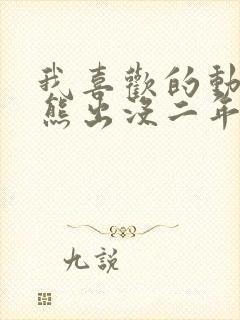 我喜歡的動
熊出沒二年
九說